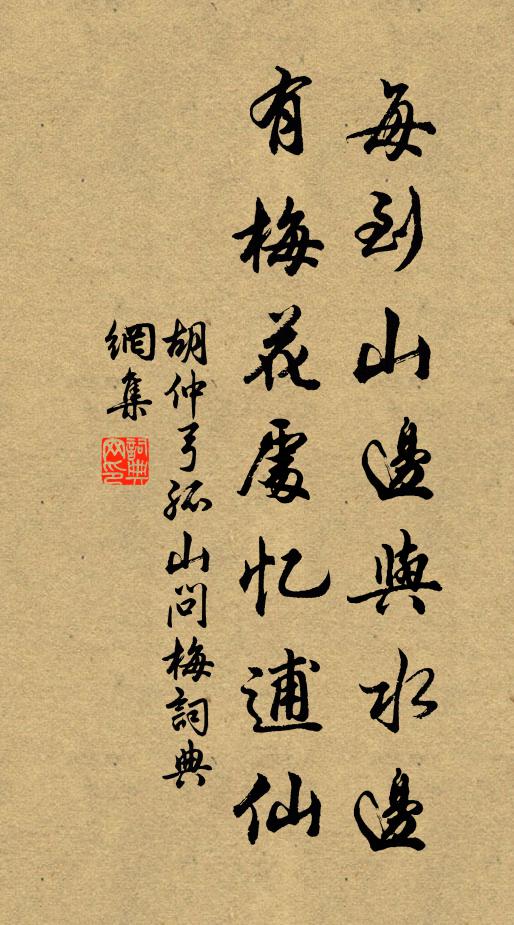 每到山邊與水邊
有梅花處忆逋仙
胡仲弓孤山問梅詞典
網集
詞典網印